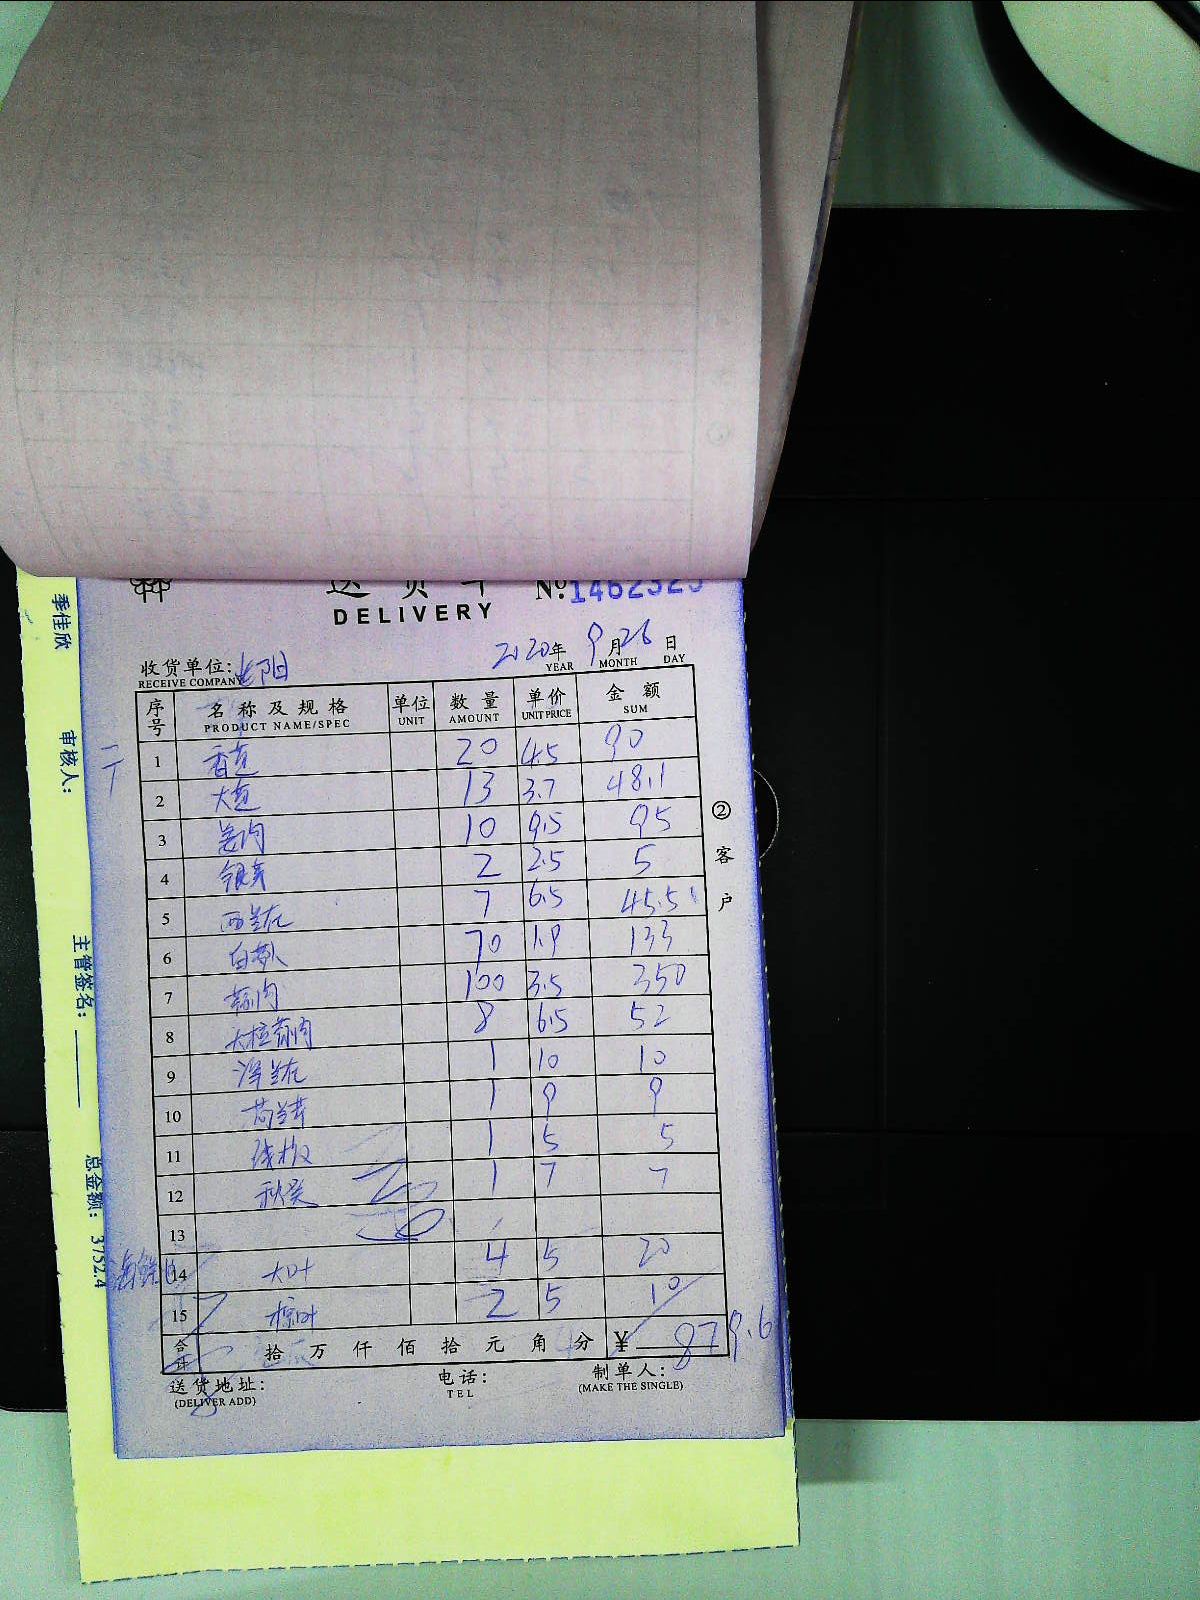 送货单 №1462323
DELIVERY
2020年 9月26日
YEAR MONTH DAY
收货单位:
RECEIVE COMPANY
序号 名称及规格 单位 数量 单价 金额
PRODUCT NAME/SPEC UNIT AMOUNT UNIT PRICE SUM
1 香芫 20 4.5 90
2 大芫 13 3.7 48.1
3 姜肉 10 9.5 95
4 银芽 2 2.5 5
5 西兰花 7 6.5 45.5
6 70 1.9 133
7 蒜肉 100 3.5 350
8 大粒蒜肉 8 6.5 52
9 1 10 10
10 1 9 9
11 线椒 1 5 5
12 秋葵 1 7 7
13
14 大叶 4 5 20
15 粽叶 2 5 10
合计 拾万仟佰拾元角分 ¥ 879.6
送货地址: 电话: 制单人:
(DELIVER ADD) TEL (MAKE THE SINGLE)
②客户
季佳欣
审核人:
主管签名:
总金额: 3752.4